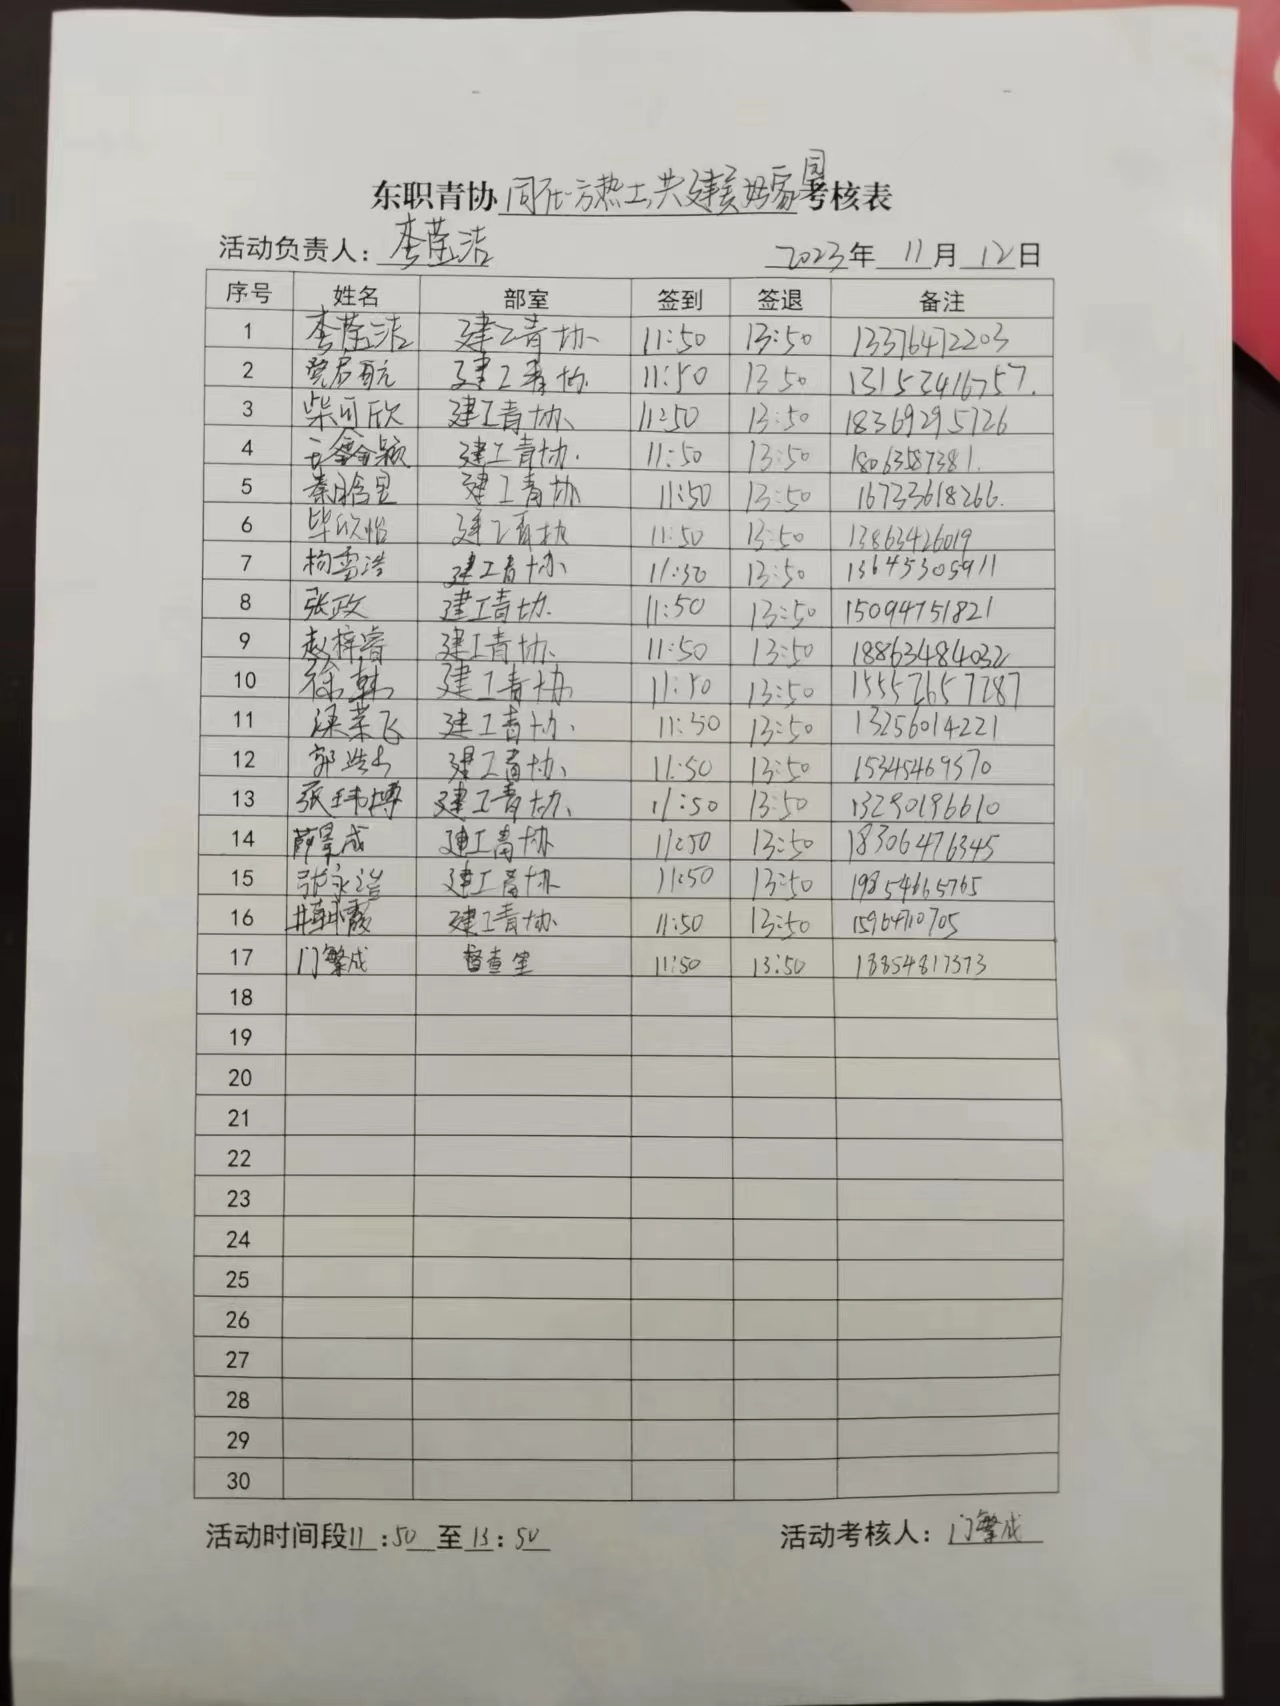 东职青协 同在一方热土,共建美好家园 考核表
活动负责人: 李莹洁 2023年 11月 12日
序号 姓名 部室 签到 签退 备注
1 李莹洁 建工青协 11:50 13:50 13376472203
2 建工青协 11:50 13:50 13152416757.
3 柴可欣 建工青协 11:50 13:50 18369295726
4 王鑫颖 建工青协. 11:50 13:50 18063587381.
5 秦晗昱 建工青协 11:50 13:50 16733618266.
6 毕欣怡 建工青协 11:50 13:50 13863426019
7 杨雪浩 建工青协 11:50 13:50 13645305911
8 张政 建工青协. 11:50 13:50 15094751821
9 赵梓睿 建工青协、 11:50 13:50 18863484032
10 徐韩 建工青协 11:50 13:50 15552657287
11 梁荣飞 建工青协. 11:50 13:50 13256014221
12 郭浩 建工青协、 11:50 13:50 15345469370
13 张玮博 建工青协、 11:50 13:50 13290196610
14 薛景成 建工青协 11:50 13:50 18306476345
15 张永浩 建工青协 11:50 13:50 19854665765
16 韩霞 建工青协 11:50 13:50 15964710705
17 门繁成 督查室 11:50 13:50 18854817373
18
19
20
21
22
23
24
25
26
27
28
29
30
活动时间段11:50 至 13:50 活动考核人: 门繁成